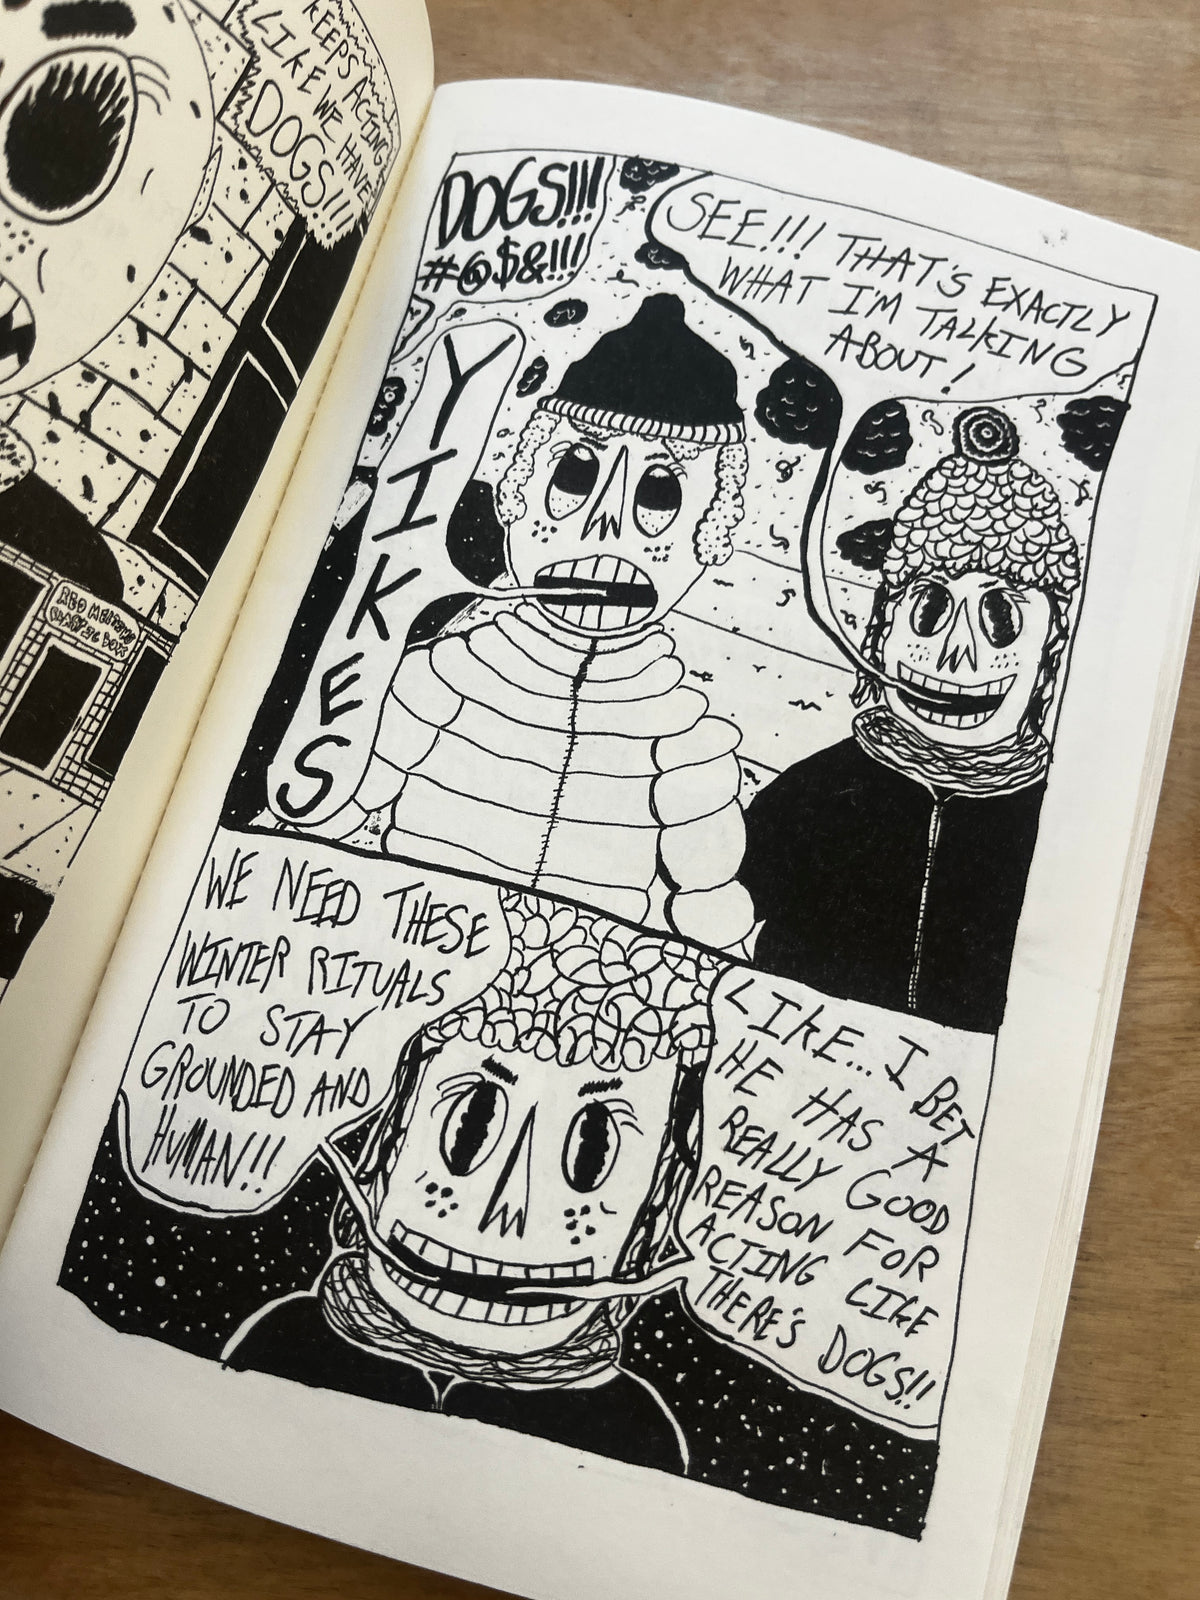 KEEPS ACTING
LIKE WE HAVE
DOGS!!!
RED MEEPLE'S
DOGS!!!
#@$&!!!
YIKES
SEE!!! THAT'S EXACTLY
WHAT I'M TALKING
ABOUT!
WE NEED THESE
WINTER RITUALS
TO STAY
GROUNDED AND
HUMAN!!
LIKE... I BET
HE HAS A
REALLY GOOD
REASON FOR
ACTING LIKE
THERE'S DOGS!!